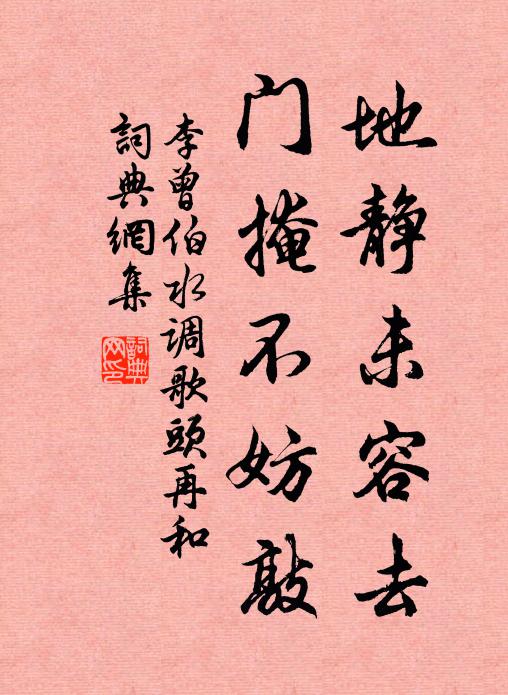 地静未容去
门掩不妨敲
李曾伯水调歌頭再和
詞典網集
詞典网印